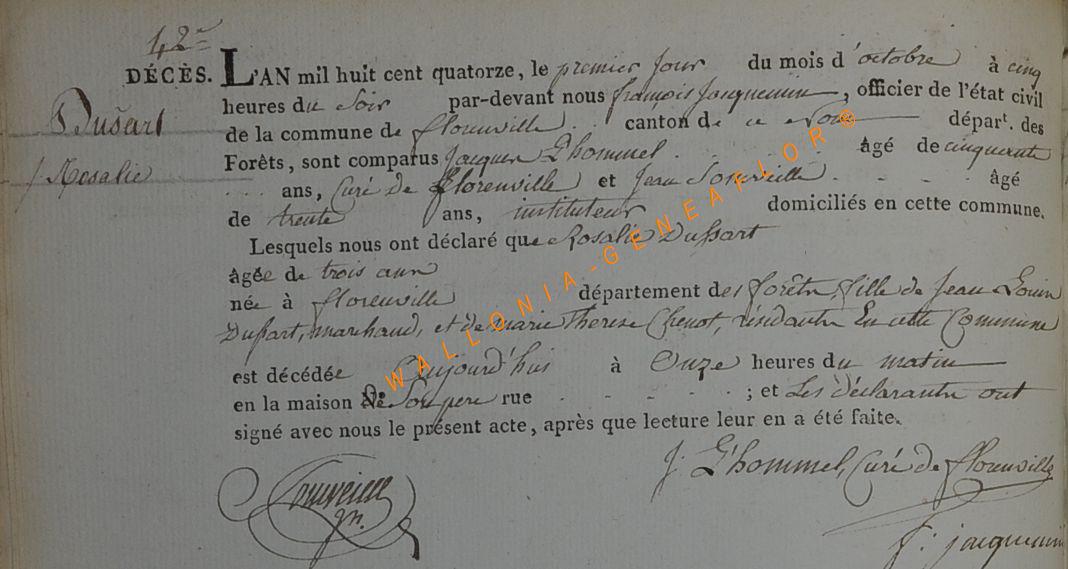 42e
DÉCÈS. L'AN mil huit cent quatorze, le premier jour du mois d'octobre à cinq
Dusart heures du Soir par-devant nous françois Jacquemin, officier de l'état civil
de la commune de florenville canton de ce Nom départ. des
Rosalie Forêts, sont comparus Jacques L'hommel âgé de cinquante
ans, Curé de florenville et Jean Souveille âgé
de trente ans, instituteur domiciliés en cette commune.
Lesquels nous ont déclaré que Rosalie Dussart
âgée de trois ans
née à florenville département des forêts, fille de Jean Louis
Dussart, marchand, et de marie Therese Chenot, résidants En cette Commune
est décédée aujourd'hui à Onze heures du matin
en la maison De Son pere rue ; et Les déclarants ont
signé avec nous le présent acte, après que lecture leur en a été faite.
J. L'hommel, Curé de florenville
Souveille
f: jacquemin
WALLONIA-GENEAFLOR®